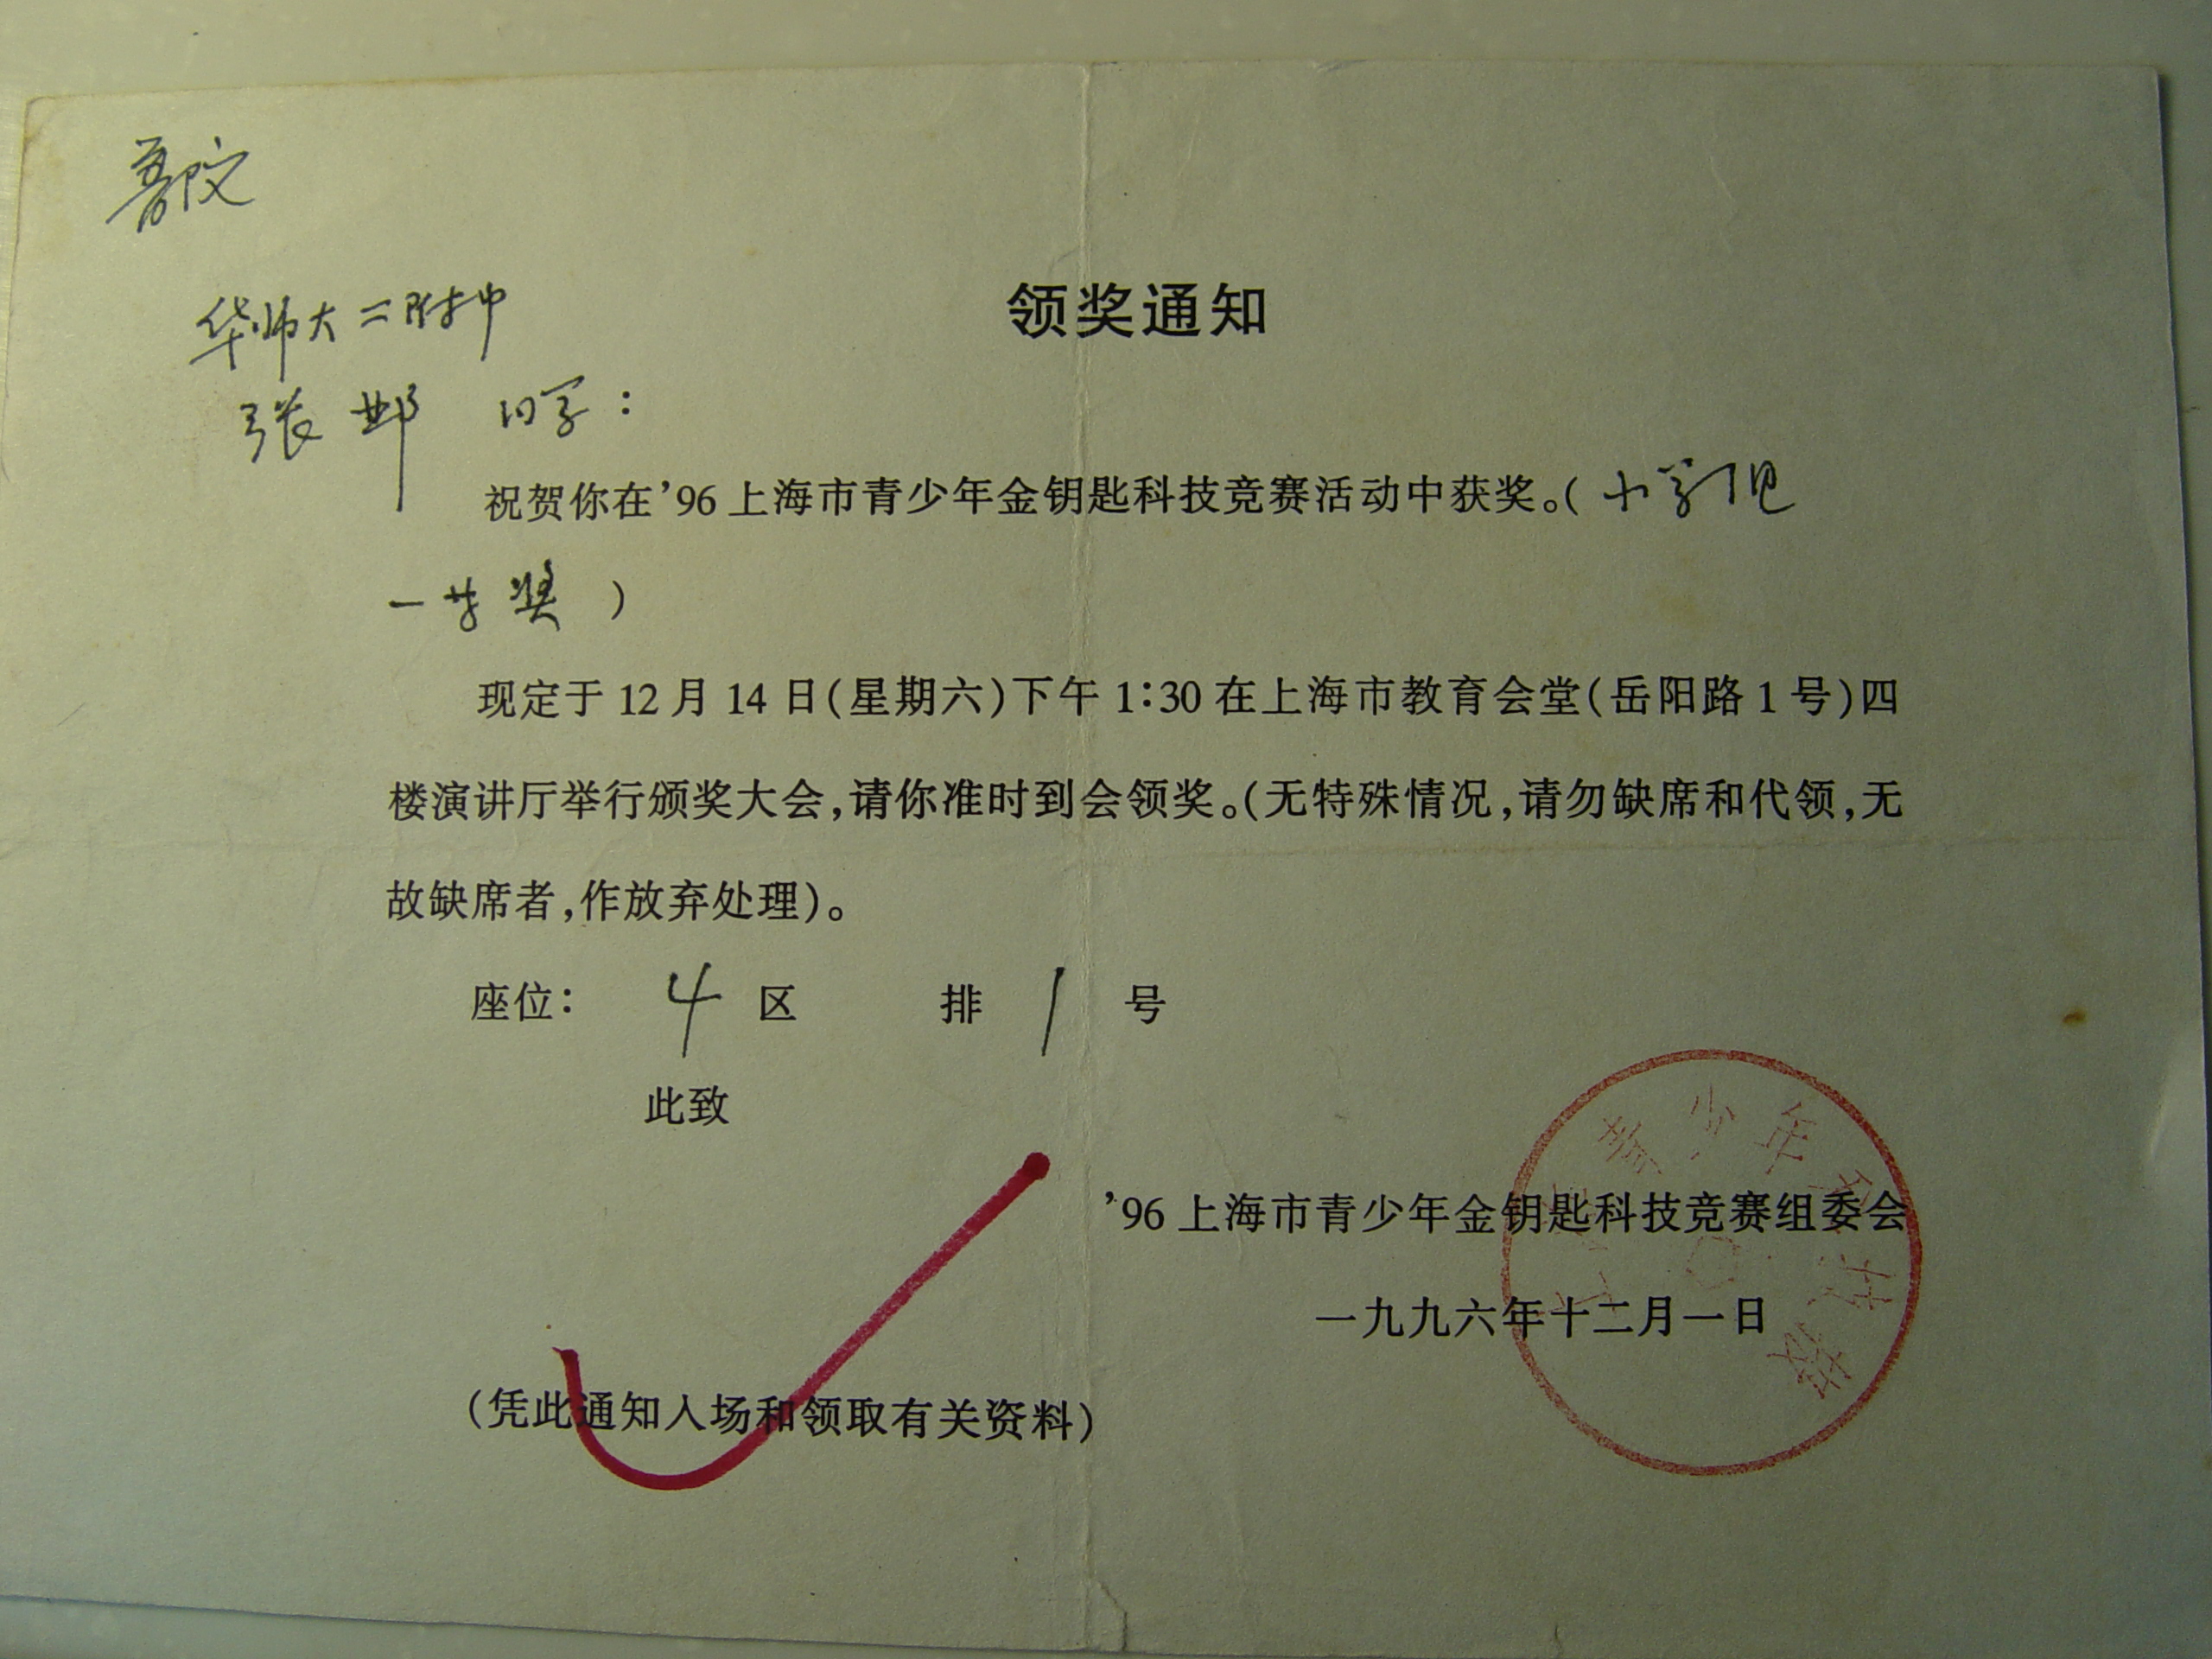 领奖通知
华师大二附中
张邺 同学:
祝贺你在’96上海市青少年金钥匙科技竞赛活动中获奖。(小学组
一等奖)
现定于12月14日(星期六)下午1:30在上海市教育会堂(岳阳路1号)四
楼演讲厅举行颁奖大会,请你准时到会领奖。(无特殊情况,请勿缺席和代领,无
故缺席者,作放弃处理)。
座位: 4 区 排 1 号
此致
’96上海市青少年金钥匙科技竞赛组委会
一九九六年十二月一日
(凭此通知入场和领取有关资料)